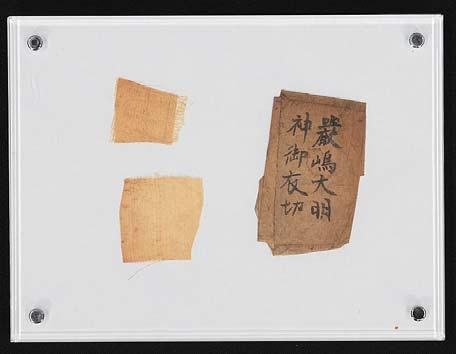 嚴嶋大明
神御衣切